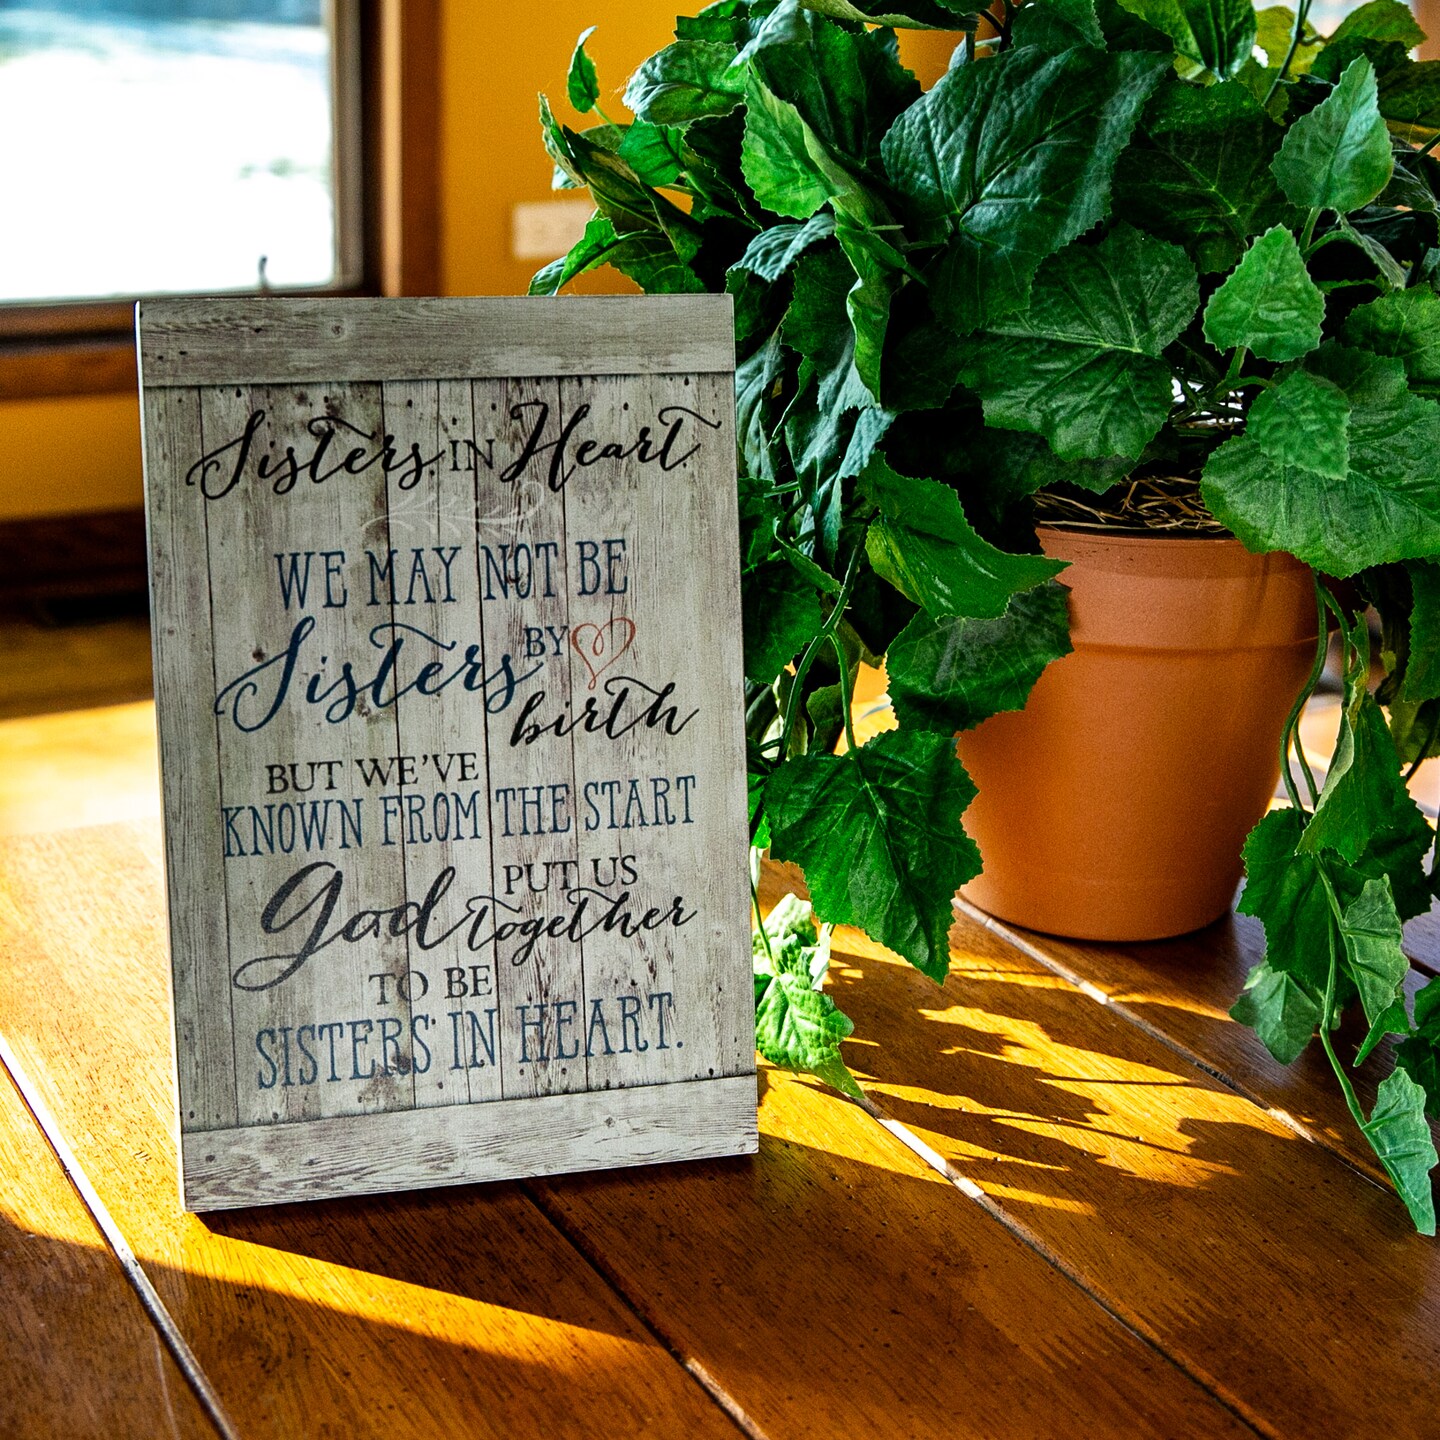 Sisters IN Heart
WE MAY NOT BE
Sisters BY
birth
BUT WE'VE
KNOWN FROM THE START
God PUT US
together
TO BE
SISTERS IN HEART.